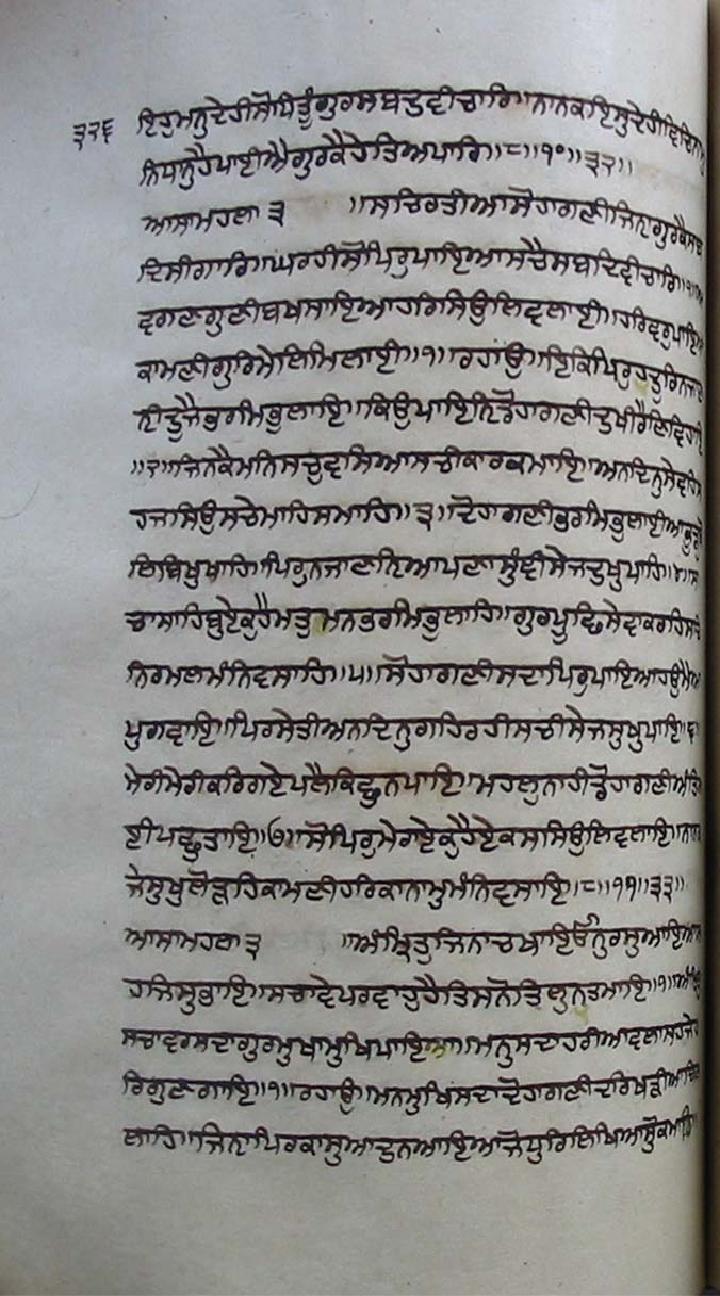 ੩੨੬ ਇਹੁਮਨੁਦੇਹੀਸੋਧਿਤੂੰਗੁਰਸਬਦੁਵੀਚਾਰਿ॥ਨਾਨਕਇਸੁਦੇਹੀਵਿਚਿਨਾਮੁ
ਨਿਧਾਨੁਹੈਪਾਈਐਗੁਰਕੈਹੇਤਿਅਪਾਰਿ॥੮॥੧੦॥੩੨॥
ਆਸਾਮਹਲਾ੩ ॥ਸਚਿਰਤੀਆਸੋਹਾਗਣੀਜਿਨਾਗੁਰਕੈਸਬ
ਦਿਸੀਗਾਰਿ॥ਘਰਹੀਸੋਪਿਰੁਪਾਇਆਸਚੈਸਬਦਿਵੀਚਾਰਿ॥੧॥ਅ
ਵਗਣਗੁਣੀਬਖਸਾਇਆਹਰਿਸਿਉਲਿਵਲਾਈ॥ਹਰਿਵਰੁਪਾਇਆ
ਕਾਮਣੀਗੁਰਿਮੇਲਿਮਿਲਾਈ॥੧॥ਰਹਾਉ॥ਇਕਿਪਿਰੁਹਦੂਰਿਨਜਾਣ
ਨੀਦੂਜੈਭਰਮਿਭੁਲਾਇ॥ਕਿਉਪਾਇਨਿਡੋਹਾਗਣੀਦੁਖੀਰੈਣਿਵਿਹਾਇ
॥੨॥ਜਿਨਕੈਮਨਿਸਚੁਵਸਿਆਸਚੀਕਾਰਕਮਾਇ॥ਅਨਦਿਨੁਸੇਵਹਿਸ
ਹਜਸਿਉਸਚੇਮਾਹਿਸਮਾਹਿ॥੩॥ਦੋਹਾਗਣੀਭਰਮਿਭੁਲਾਈਆਕੂੜੁਬੋ
ਲਿਬਿਖੁਖਾਹਿ॥ਪਿਰੁਨਜਾਣਨਿਆਪਣਾਸੁੰਞੀਸੇਜਦੁਖੁਪਾਹਿ॥੪॥ਸ
ਚਾਸਾਹਿਬੁਏਕੁਹੈਮਤੁਮਨਭਰਮਿਭੁਲਾਹਿ॥ਗੁਰਪੂਛਿਸੇਵਾਕਰਹਿਸਚੁ
ਨਿਰਮਲਮੰਨਿਵਸਾਹਿ॥੫॥ਸੋਹਾਗਣੀਸਦਾਪਿਰੁਪਾਇਆਹਉਮੈਆ
ਪੁਗਵਾਇ॥ਪਿਰਸੇਤੀਅਨਦਿਨੁਗਹਿਰਹੀਸਚੀਸੇਜਸੁਖੁਪਾਇ॥੬॥
ਮੇਰੀਮੇਰੀਕਰਿਗਏਪਲੈਕਿਛੁਨਪਾਇ॥ਮਹਲੁਨਾਹੀਡੋਹਾਗਣੀਅੰਤਿ
ਈਪਛੁਤਾਇ॥੭॥ਸੋਪਿਰੁਮੇਰਾਏਕੁਹੈਏਕਸਸਿਉਲਿਵਲਾਇ॥ਨਾਨਕ
ਜੇਸੁਖੁਲੋੜਹਿਕਾਮਣੀਹਰਿਕਾਨਾਮੁਮੰਨਿਵਸਾਇ॥੮॥੧੧॥੩੩॥
ਆਸਾਮਹਲਾ੩ ॥ਅੰਮ੍ਰਿਤੁਜਿਨਾਚਖਾਇਓਨੁਰਸੁਆਇਆਸ
ਹਜਿਸੁਭਾਇ॥ਸਚਾਵੇਪਰਵਾਹੁਹੈਤਿਸਨੋਤਿਲੁਨਤਮਾਇ॥੧॥ਅੰਮ੍ਰਿਤੁ
ਸਚਾਵਰਸਦਾਗੁਰਮੁਖਾਮੁਖਿਪਾਇ॥ਮਨੁਸਦਾਹਰੀਆਵਲਾਸਹਜੇਹ
ਰਿਗੁਣਗਾਇ॥੧॥ਰਹਾਉ॥ਮਨਮੁਖਿਸਦਾਦੋਹਾਗਣੀਦਰਿਖੜੀਆਬਿਲ
ਲਾਹਿ॥ਜਿਨਾਪਿਰਕਾਸੁਆਦੁਨਆਇਆਜੋਧੁਰਿਲਿਖਿਆਸੋੁਕਮਾਹਿ